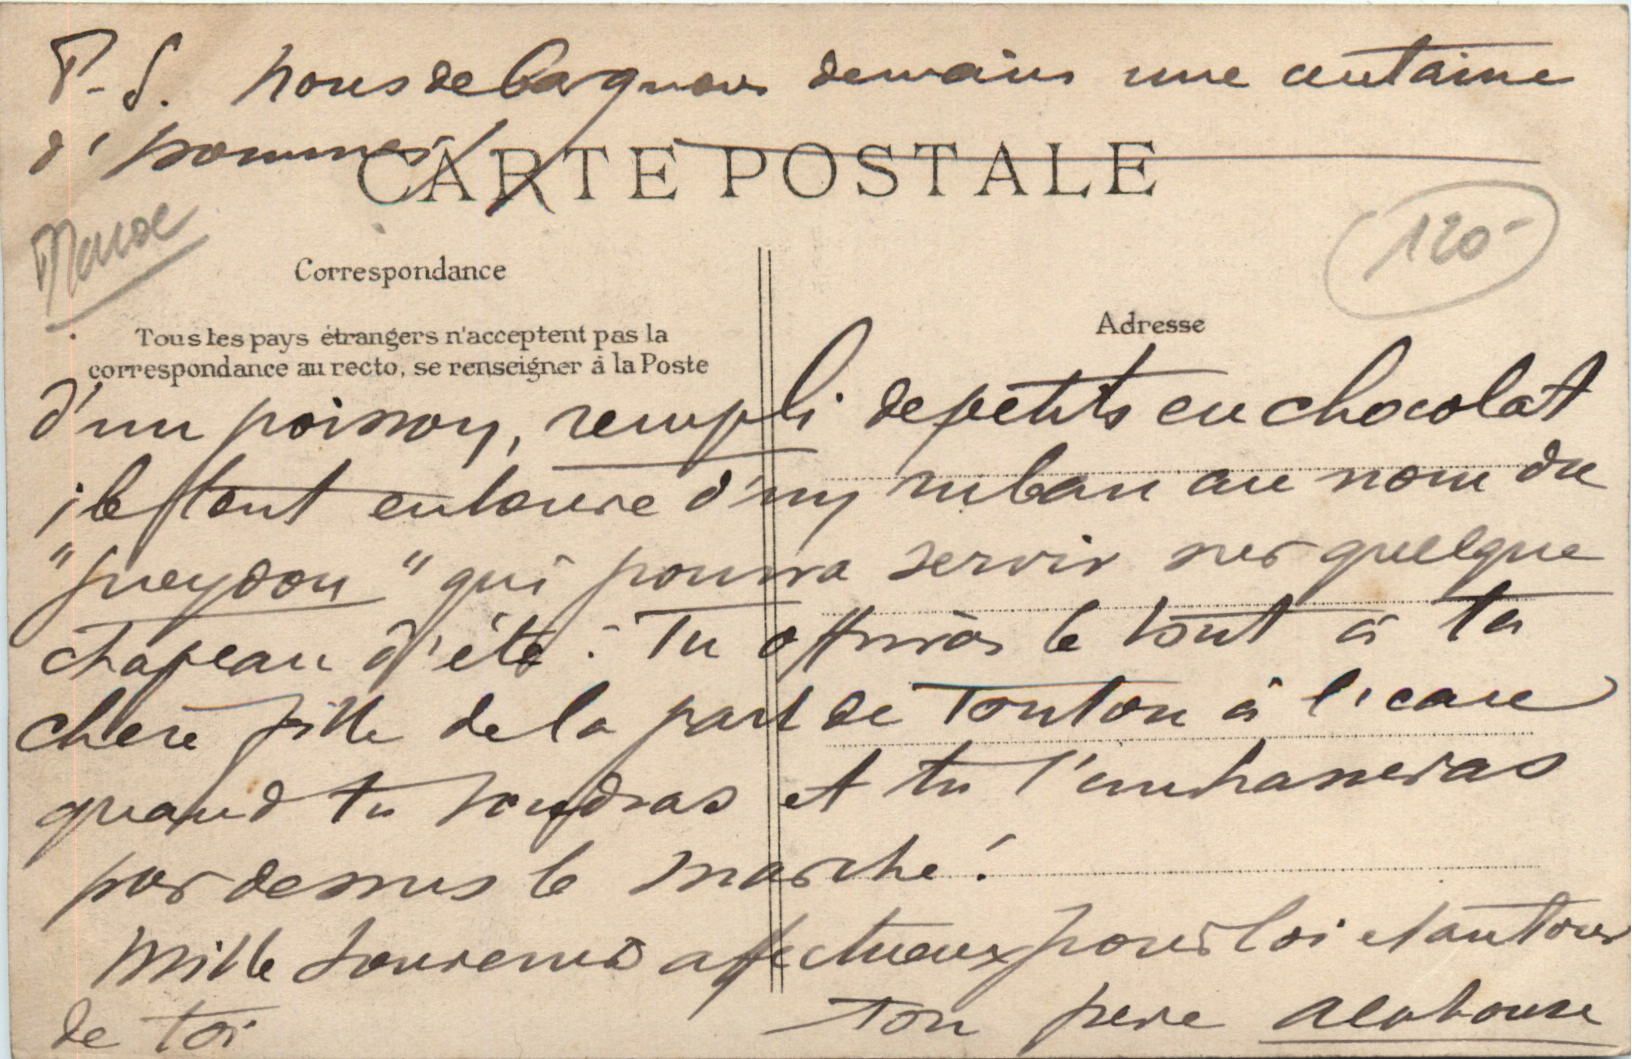 P.S. nous debarquons demain une centaine
d'hommes!
CARTE POSTALE
Maroc
120-
Correspondance
Tous les pays étrangers n'acceptent pas la
correspondance au recto, se renseigner à la Poste
Adresse
d'un poisson, rempli de petits en chocolat
il est tout entouré d'un ruban au nom du
"Gueydon" qui pourra servir sur quelque
chapeau d'été. Tu offriras le tout à ta
chère fille de la part de Tonton à l'
quand tu voudras et tu l'embrasseras
par dessus le marché!
Mille souvenirs affectueux pour toi et autour
de toi
ton père Alphonse